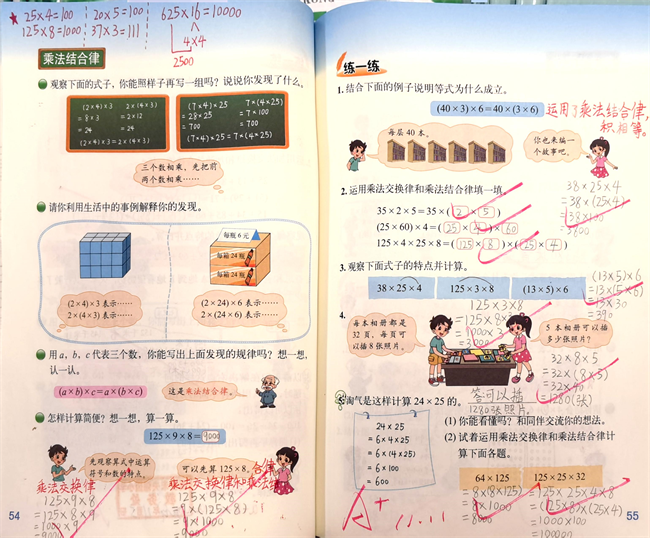 ★ 25×4=100 20×5=100 625×16=10000
125×8=1000 37×3=111
4×4
2500
乘法结合律
观察下面的式子，你能照样子再写一组吗？说说你发现了什么。
(2×4)×3 2×(4×3)
=8×3 =2×12
=24 =24
(2×4)×3=2×(4×3)
(7×4)×25 7×(4×25)
=28×25 =7×100
=700 =700
(7×4)×25=7×(4×25)
三个数相乘，先把前
两个数相乘……
请你利用生活中的事例解释你的发现。
每瓶6元
每箱24瓶
每箱24瓶
(2×4)×3表示……
2×(4×3)表示……
(2×24)×6表示……
2×(24×6)表示……
用a，b，c代表三个数，你能写出上面发现的规律吗？想一想，
认一认。
(a×b)×c=a×(b×c)
这是乘法结合律。
怎样计算简便？想一想，算一算。
125×9×8=9000
先观察算式中运算
符号和数的特点。
可以先算125×8。
乘法交换律
125×9×8
=125×8×9
=1000×9
乘法交换律和乘法结合律
125×9×8
=9×(125×8)
=9×1000
=9000
54
练一练
1.结合下面的例子说明等式为什么成立。
(40×3)×6=40×(3×6)
运用了乘法结合律，
积相等。
每层40本。
你也来编一
个故事吧。
2.运用乘法交换律和乘法结合律填一填。
35×2×5=35×(2×5)
(25×60)×4=(25×4)×60
125×4×25×8=(125×8)×(25×4)
38×25×4
=38×(25×4)
=38×100
=3800
3.观察下面式子的特点并计算。
38×25×4 125×3×8 (13×5)×6
125×3×8
=125×8×3
=1000×3
=3000
(13×5)×6
=13×(5×6)
=13×30
=390
4.
每本相册都是
32页，每页可
以插8张照片。
5本相册可以插
多少张照片？
32×8×5
=32×(8×5)
=32×40
=1280(张)
答可以插
1280张照片。
淘气是这样计算24×25的。
24×25
=6×4×25
=6×(4×25)
=6×100
=600
(1)你能看懂吗？和同伴交流你的想法。
(2)试着运用乘法交换律和乘法结合律计
算下面各题。
64×125 125×25×32
=8×(8×125)
=8×1000
=8000
=125×25×4×8
=(125×8)×(25×4)
=1000×100
=100000
A+
11.11
55